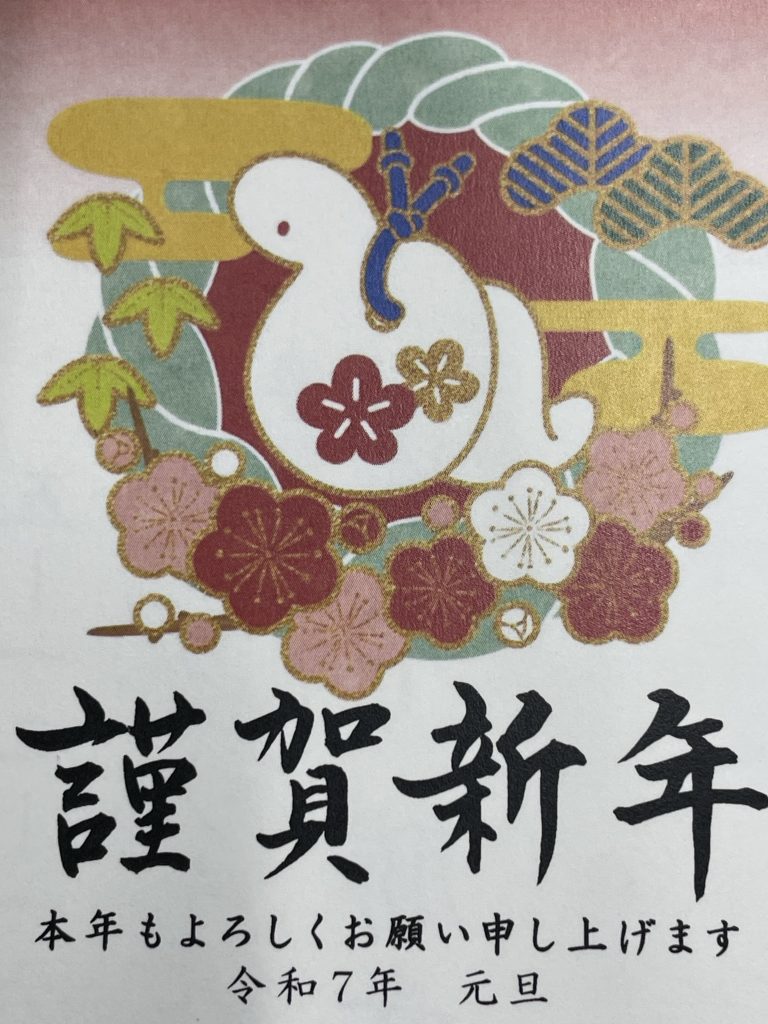 謹賀新年
本年もよろしくお願い申し上げます
令和7年　元旦